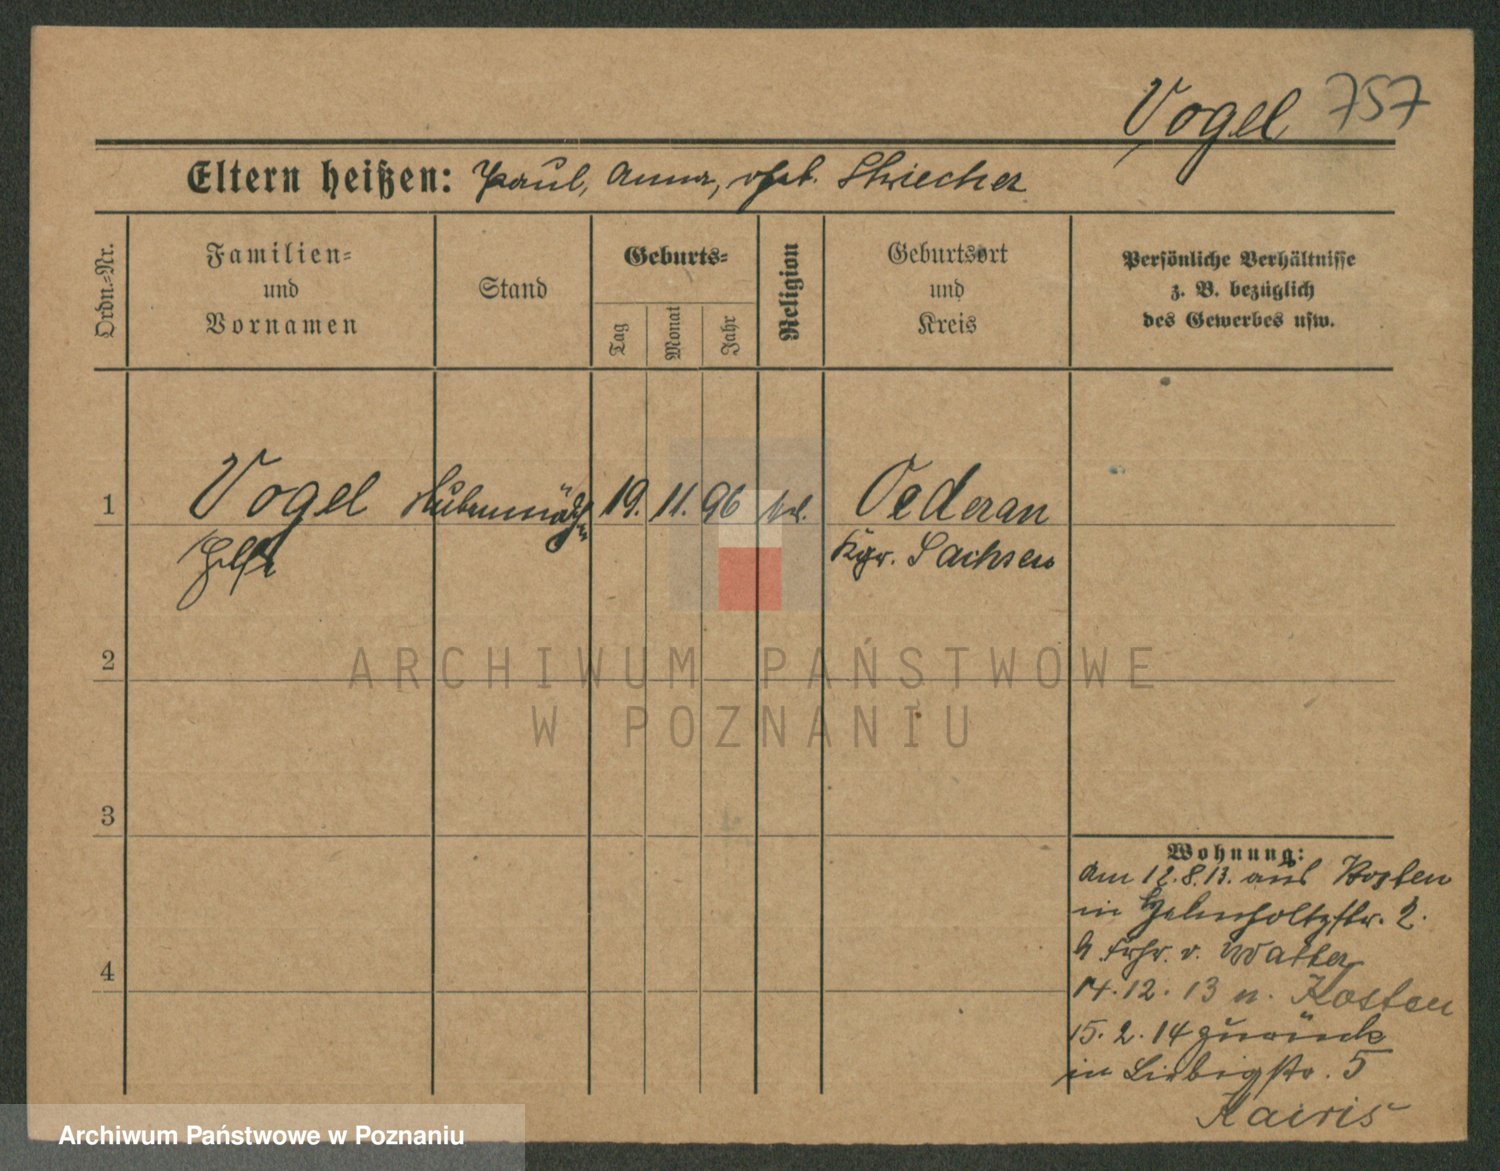 Vogel 757
Eltern heißen: Paul, Anna, geb. Striecher
Ordn.-Nr.
Familien-
und
Vornamen
Stand
Geburts-
Tag
Monat
Jahr
Religion
Geburtsort
und
Kreis
Persönliche Verhältnisse
z. B. bezüglich
des Gewerbes usw.
1 Vogel Stubenmädch 19. 11. 96 Oederan
Kgr. Sachsen
2
3
4
Wohnung:
am 12.8.13. aus Kosten
in Helmholtzstr. 2.
b. Frhr. v. Watter
14.12.13 n. Kosten
15.2.14 zurück
in Liebigstr. 5
Kairis
ARCHIWUM PAŃSTWOWE
W POZNANIU
Archiwum Państwowe w Poznaniu